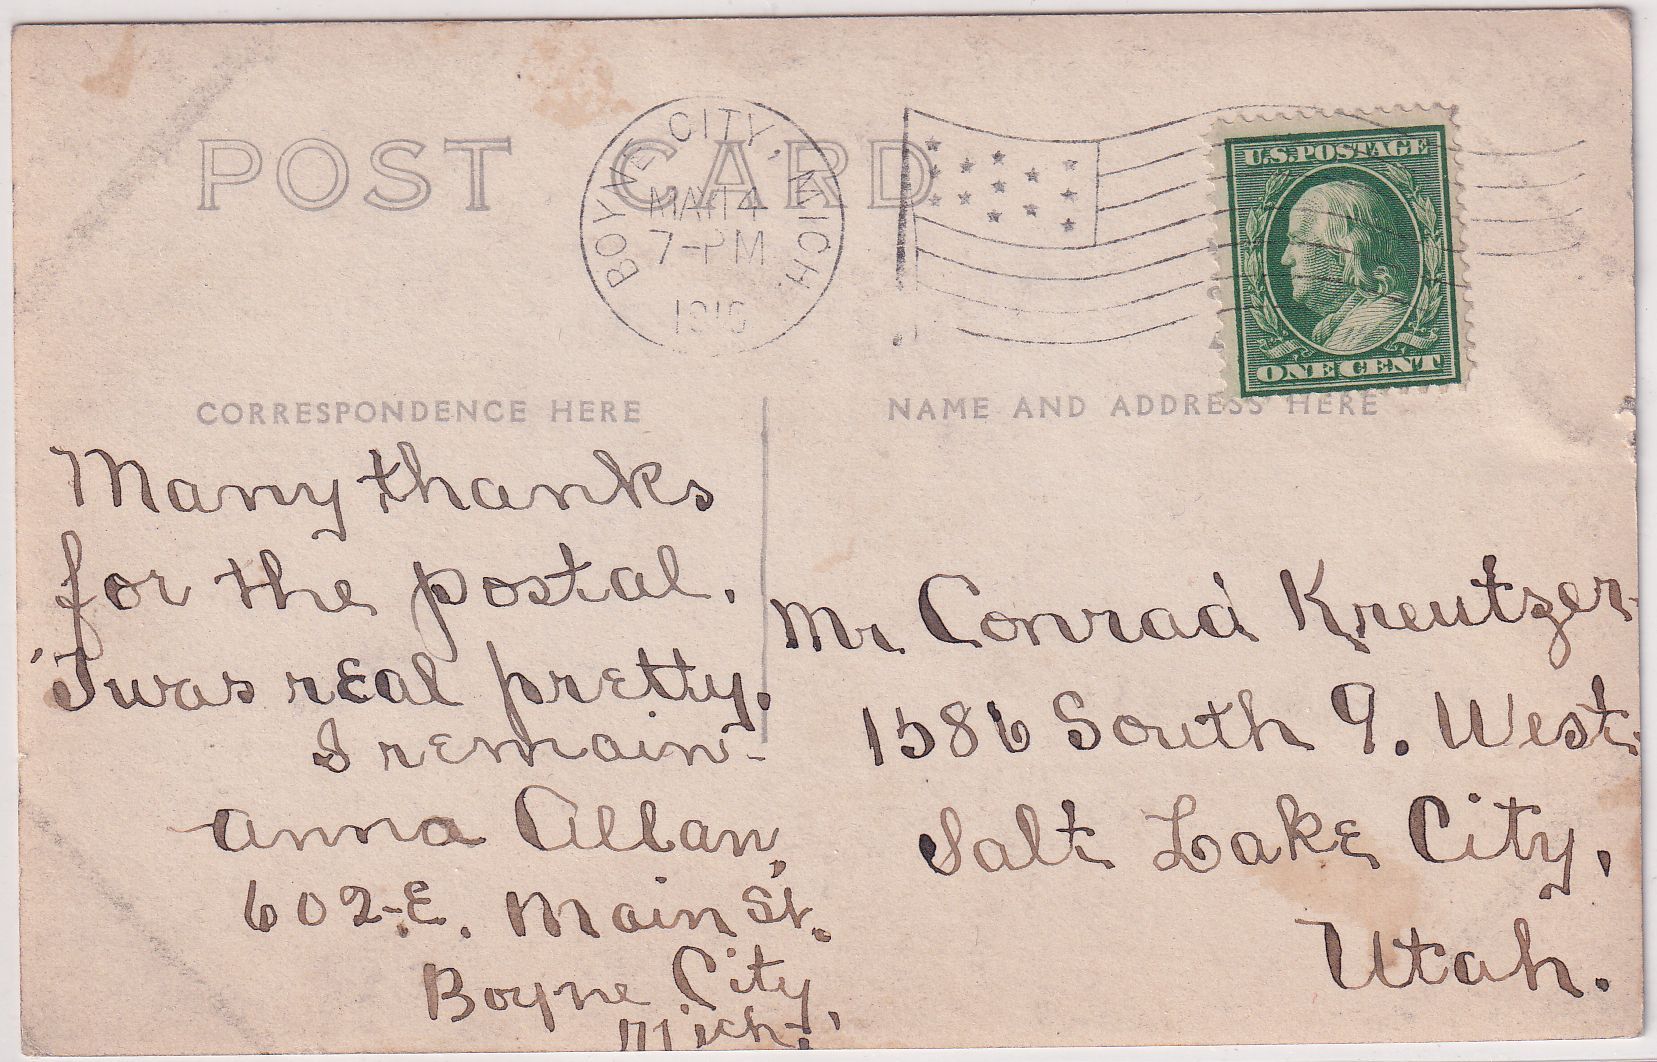 POST CARD
BOYNE CITY, MICH.
MAY 14
7-PM
1910
U.S. POSTAGE
ONE CENT
CORRESPONDENCE HERE
NAME AND ADDRESS HERE
Many thanks
for the postal.
'Twas real pretty.
I remain-
Anna Allan,
602-E. Main St.
Boyne City,
Mich.
Mr Conrad Kreutzer
1586 South 9. West
Salt Lake City,
Utah.